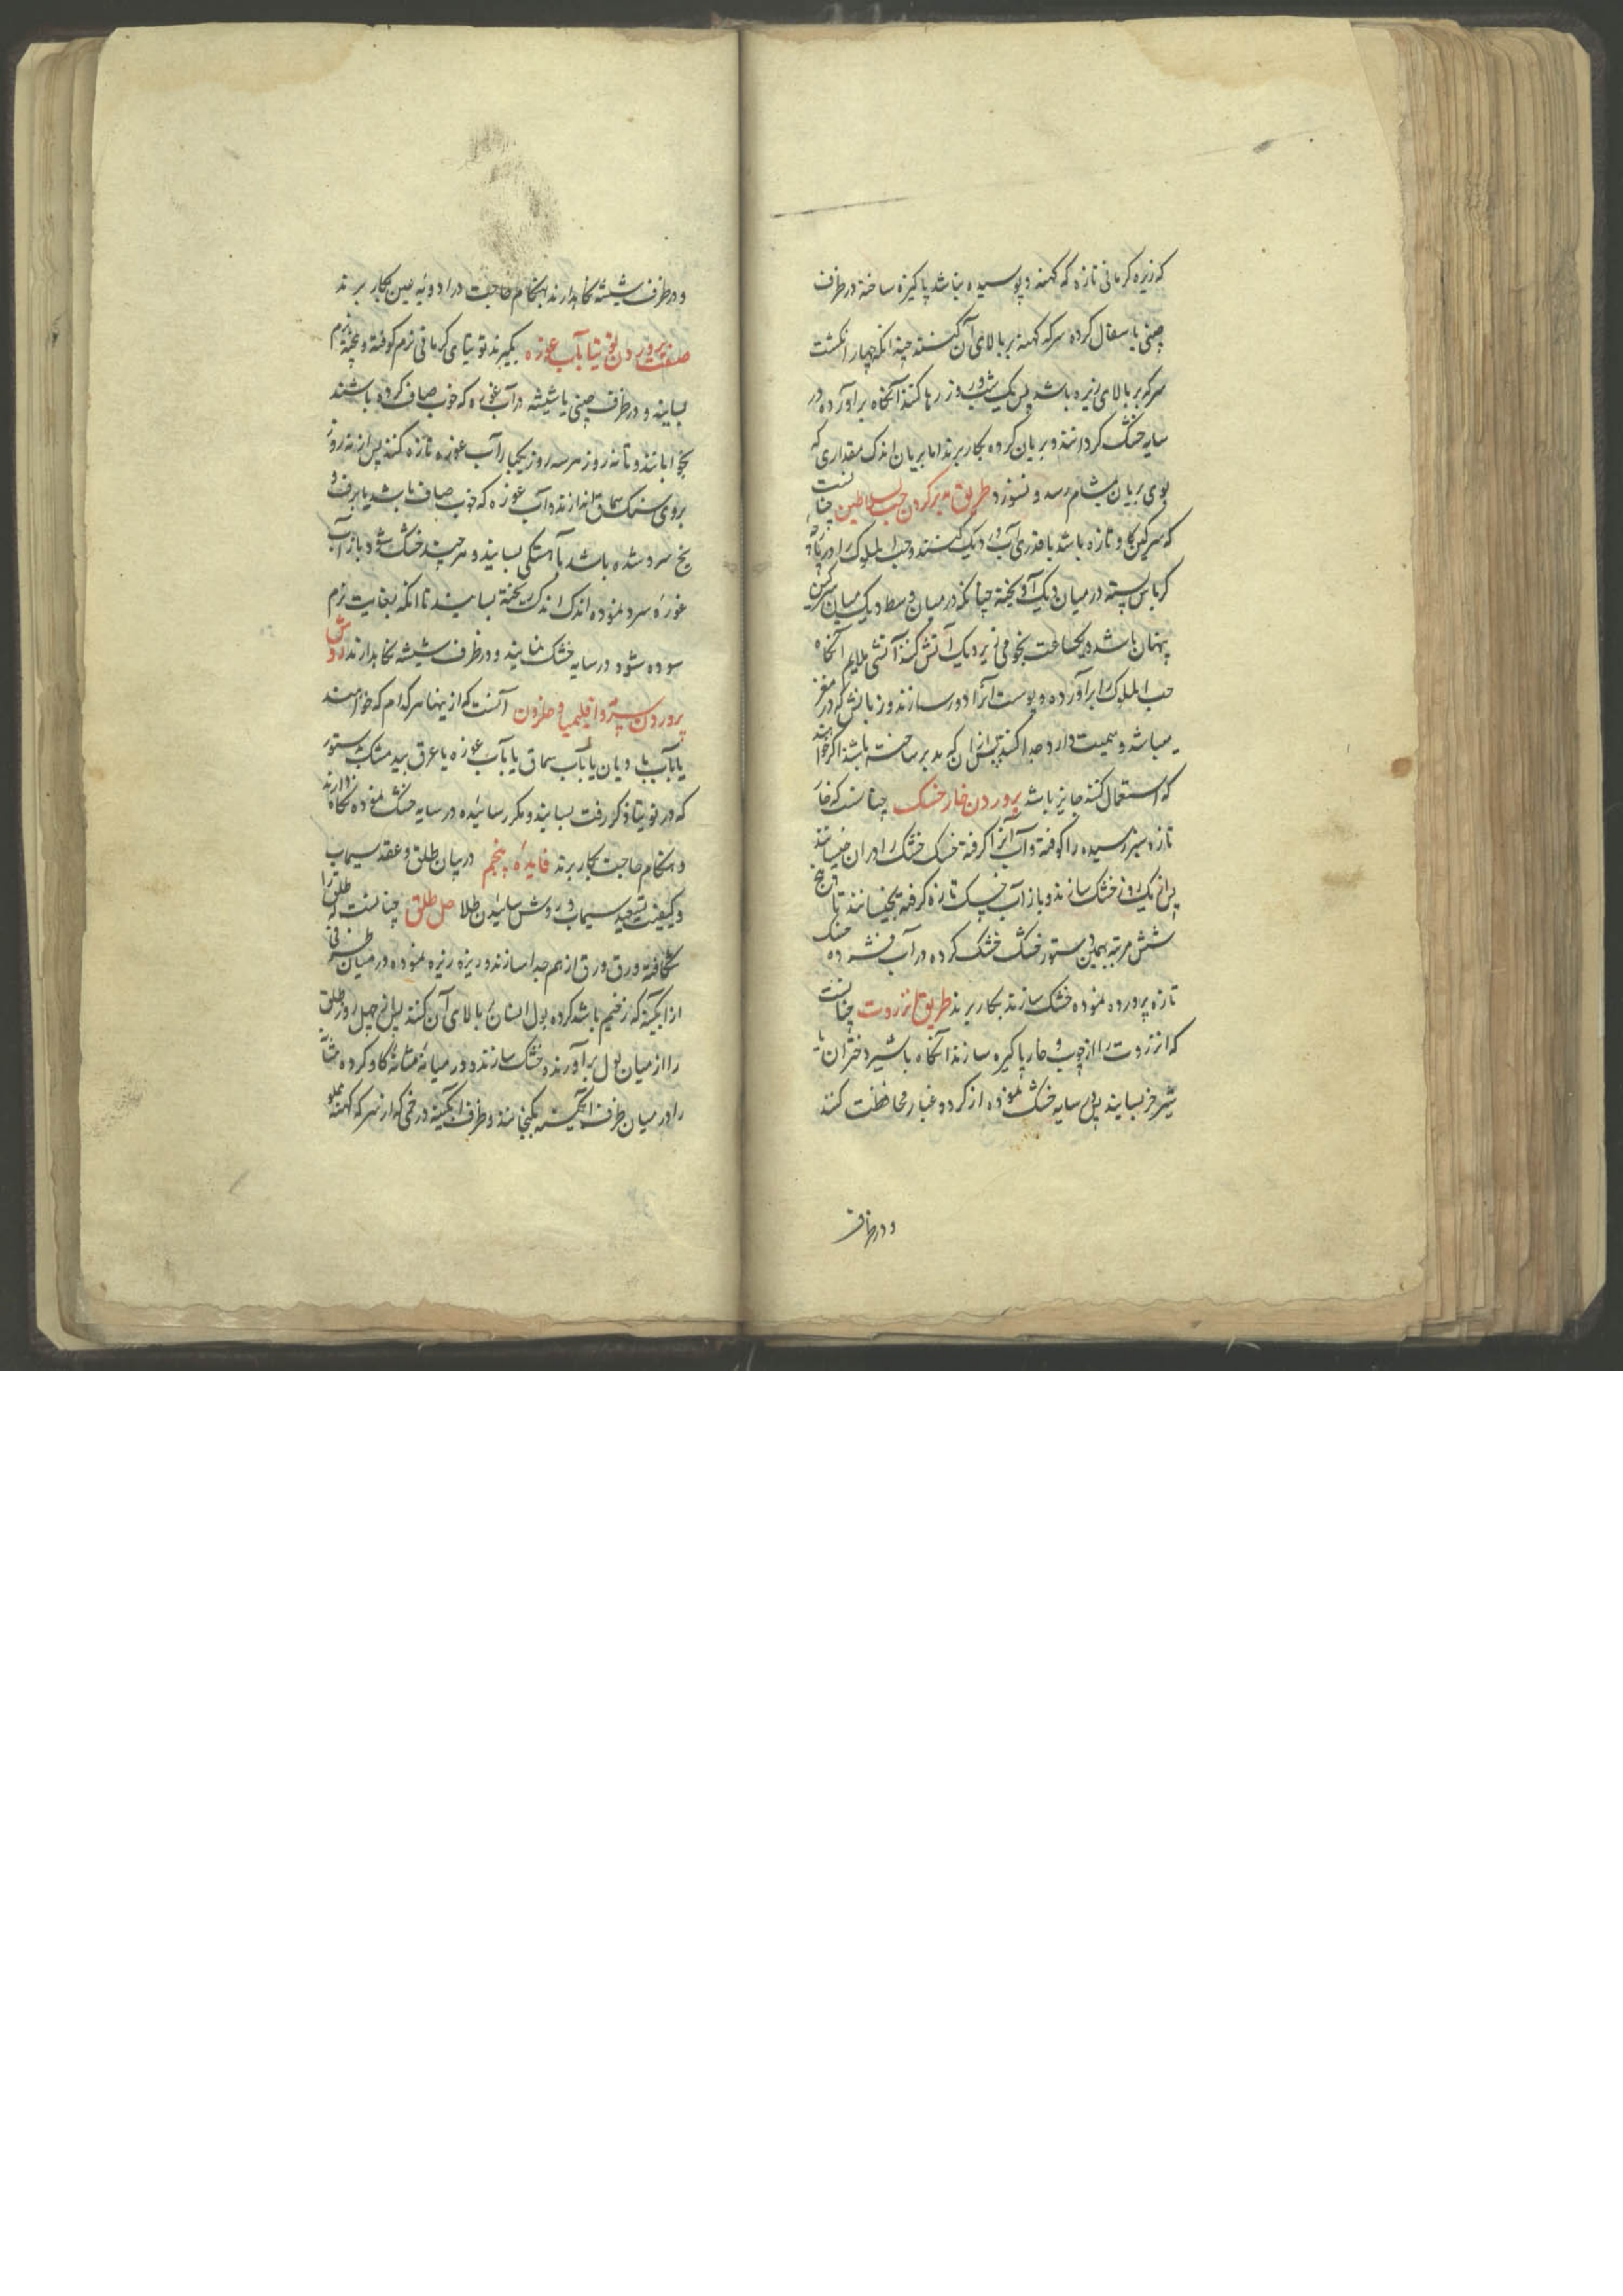 که زیره کرمانی تازه که کهنه و پوسیده نباشد پاکیزه ساخته در ظرف
چینی یا سفال کرده سرکه کهنه بر بالای آن کنند چندانکه چهار انکشت
سرکه بر بالای زیره باشد پس یک شب و روز رها کنند آنکاه برآورده در
سایه خشک کردانند و بریان کرده بکار برند اما بریان اندک مقداری که
بوی بریان بمشام رسد و نسوزد طریق مدبر کردن حب السلاطین چنانست
که سرکین کاو تازه باشد با قدری آب در دیک کنند و حب الملوک را در پارچه
کرباس بسته در میان دیک آویخته چنانکه در میان وسط دیک میان سرکین
پنهان باشد و یکساعت نجومی زیر دیک آتش کنند آتشی ملایم آنکاه
حب الملوک را برآورده و پوست آنرا دور سازند و زبانش که در مغز
میباشد و سمیت دارد جدا کنند پس از آن که مدبر ساخته باشند اکر خواهند
که استعمال کنند جایز باشد پروردن خار خسک چنانست که خار
تازه سبز رسیده را کوفته و آب آنرا کرفته خسک خشک را در آن خیسانند
پس از یک روز خشک سازند و باز آب خسک تازه کرفته بخیسانند تا پنج
شش مرتبه بهمین دستور خشک خشک کرده در آب فشرده خسک
تازه پرورده نموده خشک سازند بکار برند طریق انزروت چنانست
که انزروت را از چوب و خار پاکیزه سازند آنکاه با شیر دختران یا
شیر خر بسایند پس در سایه خشک نموده از کرد و غبار محافظت کنند
و در ظرف
و در ظرف شیشه نکاهدارند بهنکام حاجت در ادویه عین بکار برند
صفت پروردن توتیا بآب غوره بکیرند توتیای کرمانی نرم کوفته و بیخته نرم
بسایند و در ظرف چینی یا شیشه در آب غوره که خوب صاف کرده باشند
بخوابانند و تا نه روز هر سه روز یکبار آب غوره تازه کنند پس از نه روز
بروی سنک سماق اندازند و آب غوره که خوب صاف باشد یا برف و
یخ سرد شده باشد بآهستکی بسایند و هر چند خشک شود باز آب
غوره سرد نموده اندک اندک ریخته بسایند تا آنکه بغایت نرم
سوده شود در سایه خشک نمایند و در ظرف شیشه نکاهدارند روش
پروردن بسد و اقلیمیا و حلزون آنست که از اینها هر کدام که خواهند
یا بآب بادیان یا بآب سماق یا بآب غوره یا عرق بید مشک بدستور
که در توتیا ذکر رفت بسایند و مکرر سائیده در سایه خشک نموده نکاه دارند
و هنکام حاجت بکار برند فایده پنجم در بیان طلق و عقد سیماب
و کیفیت تصعید سیماب و روش سائیدن طلا حل طلق چنانست که طلق را
شکافته ورق ورق از هم جدا سازند و ریزه ریزه نموده در میان ظرفی
از آبکینه که زخیم باشد کرده بول انسان بر بالای آن کنند پس از چهل روز طلق
را از میان بول برآورند و خشک سازند و در میانه مثانه کاو کرده مثانه
را در میان ظرف آبکینه بکنجانند و ظرف آبکینه در خمی که از سرکه کهنه مملو